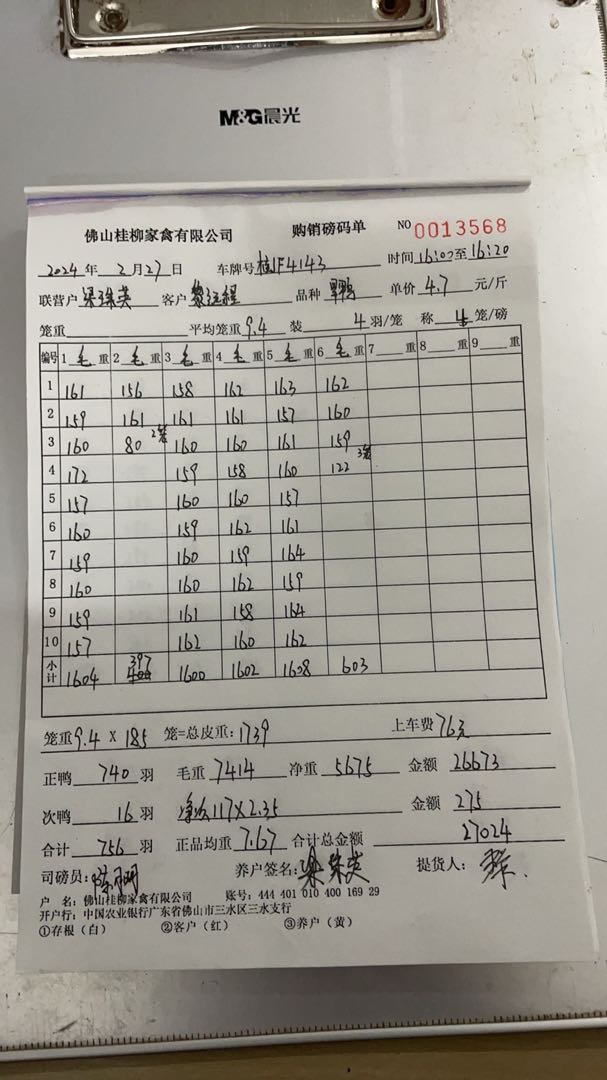 M&G晨光
佛山桂柳家禽有限公司 购销磅码单 NO 0013568
2024年 2月27日 车牌号 桂JF4143 时间16:00至16:20
联营户 梁珠英 客户 品种 单价 4.7 元/斤
笼重 平均笼重9.4 装 4 羽/笼 称 4 笼/磅
编号 1 毛 重 2 毛 重 3 毛 重 4 毛 重 5 毛 重 6 毛 重 7 重 8 重 9 重
1 161 156 158 162 163 162
2 159 161 161 161 157 160
3 160 80 2笼 160 160 161 159
4 172 159 158 160 122 3笼
5 157 160 160 157
6 160 159 162 161
7 159 160 159 164
8 160 160 162 159
9 159 161 158 164
10 157 162 160 162
小计 1604 397 1600 1602 1608 603
笼重9.4 X 185 笼=总皮重:1739 上车费76元
正鸭 740 羽 毛重 7414 净重 5675 金额 26673
次鸭 16 羽 净次117X2.35 金额 275
合计 756 羽 正品均重 7.67 合计总金额 27024
司磅员: 养户签名:梁珠英 提货人:
户 名:佛山桂柳家禽有限公司 账号:444 401 010 400 169 29
开户行:中国农业银行广东省佛山市三水区三水支行
①存根(白) ②客户(红) ③养户(黄)